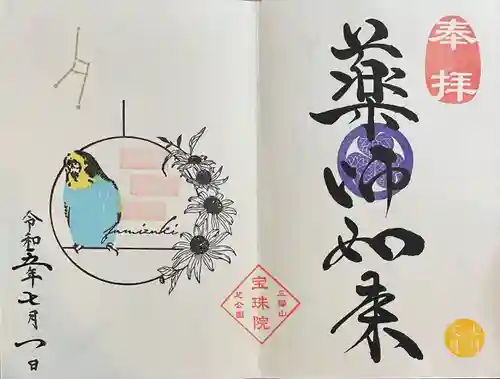 奉拝
薬師如来
三縁山
宝珠院
芝公園
fumizuki
令和五年七月一日